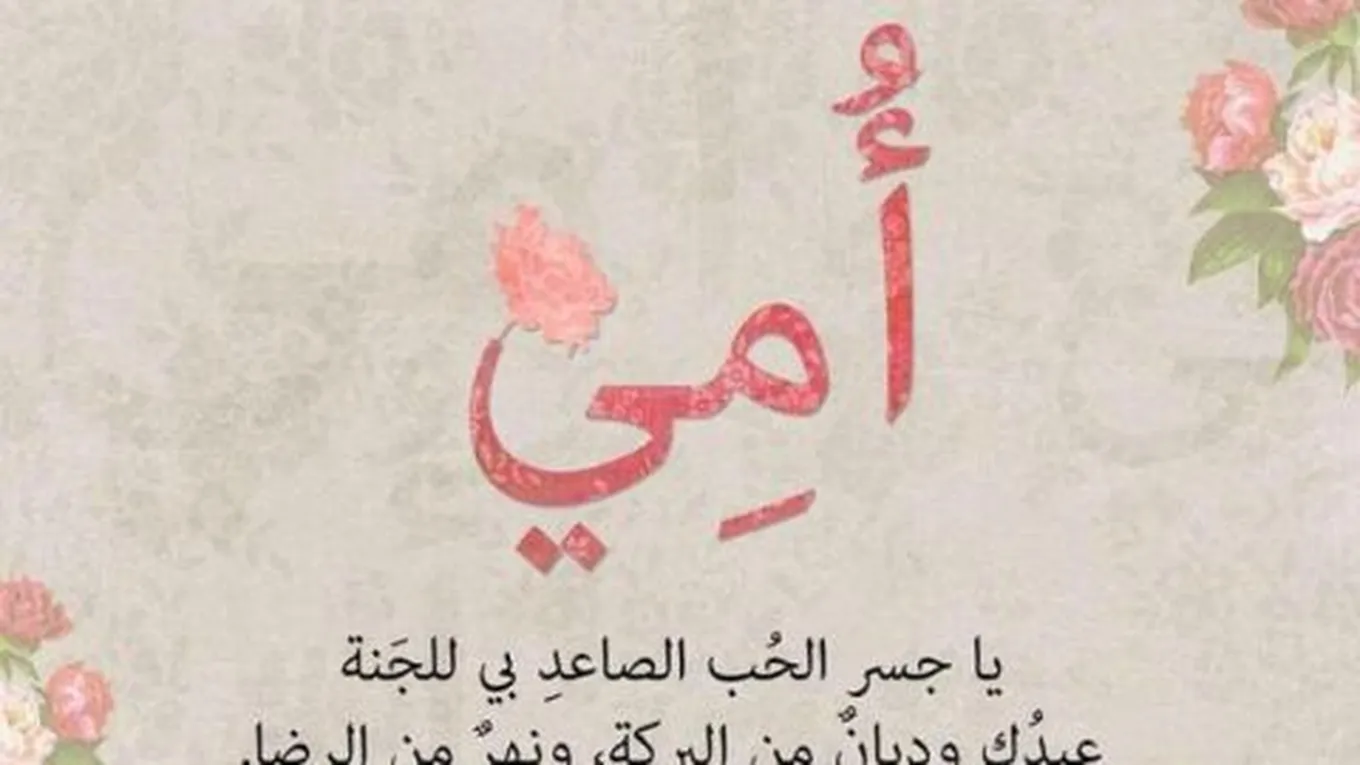 أُمِي
يا جسر الحُب الصاعدِ بي للجَنة
عيدُك وديانٌ من البركة، ونهرٌ من الرضا.